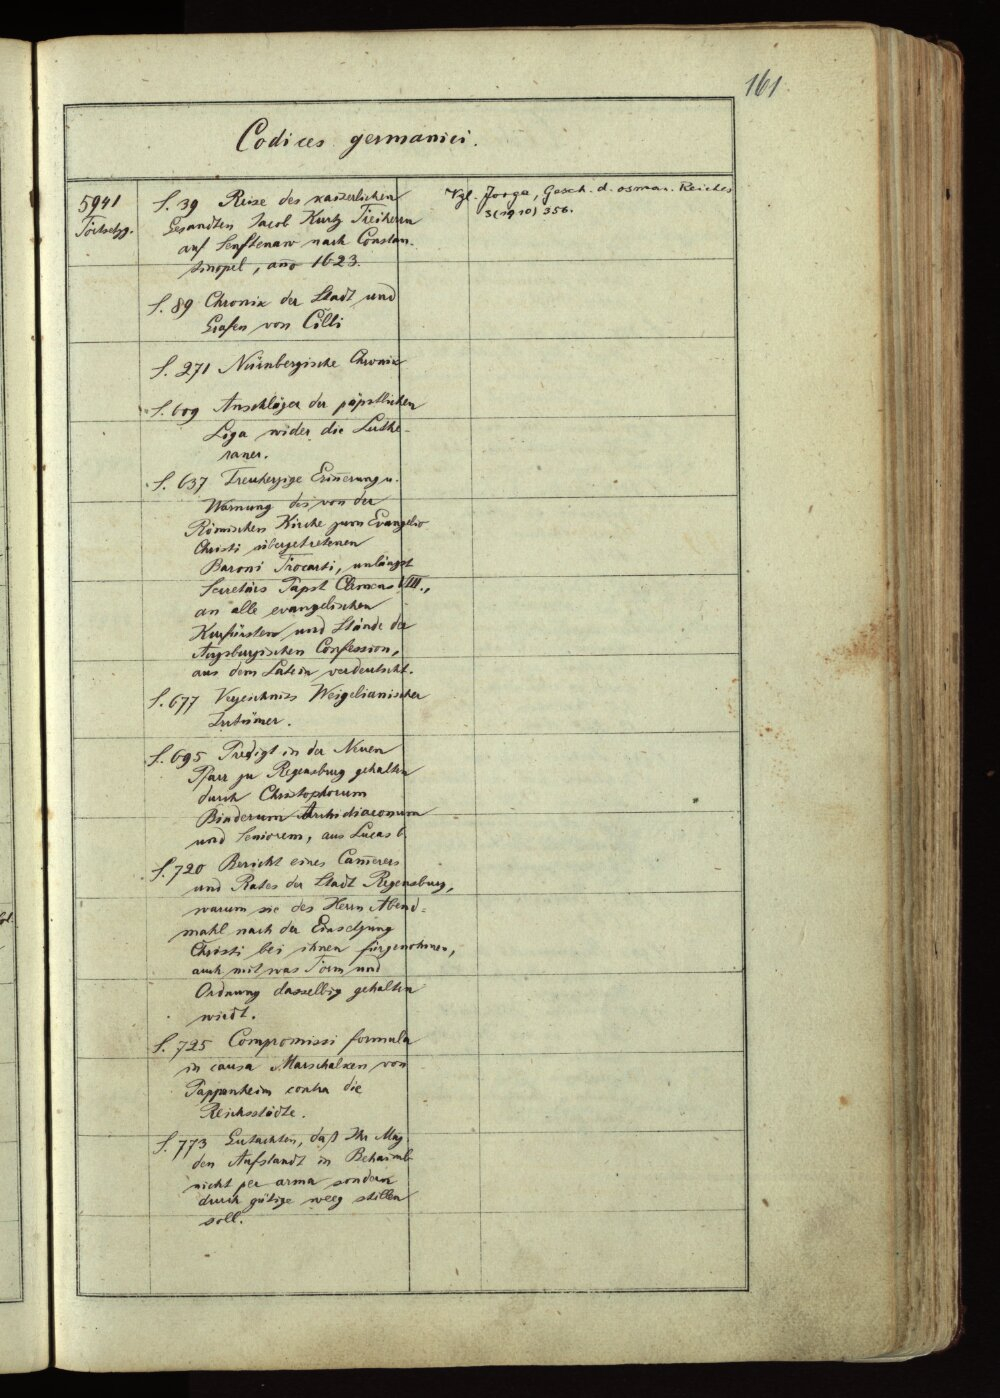 161
Codices germanici.
5941
f. 39 Reise des kaiserlichen
Gesandten Jacob Kurtz Freiherrn
auf Senftenaw nach Constan-
tinopel, año 1623.
Vgl. Jorga, Gesch. d. osman. Reiches
3(1910) 356.
f. 89 Chronik der Stadt und
Grafen von Cilli
f. 271 Nürnbergische Chronik
f. 609 Anschläger der päpstlichen
Liga wider die Luthe-
raner.
f. 637 Treuherzige Erinnerung u.
Warnung des von der
Römischen Kirche zum Evangelio
Christi übergetretenen
Baroni Trocarti, unlängst
Secretärs Papst Clemens VIII.,
an alle evangelischen
Kurfürsten und Stände der
Augsburgischen Confession,
aus dem Latein verdeutscht.
f. 677 Verzeichniss Weigelianischer
Irrtümer.
f. 695 Predigt in der Neuen
Pfarr zu Regensburg gehalten
durch Christophorum
Binderum Archidiaconum
und Seniorem, aus Lucas 6
f. 720 Bericht eines Cam̄erers
und Rates der Stadt Regensburg,
warum sie des Herrn Abend-
mahl nach der Einsetzung
Christi bei ihnen fürgenohmen,
auch mit was Form und
Ordnung dasselbig gehalten
wirdt.
f. 725 Compromissi formula
in causa Marschalken von
Pappenheim contra die
Reichsstädte.
f. 773 Gutachten, daß Ihr May.
den Aufstandt in Behaimb
nicht per arma sondern
durch gütige weeg stillen
soll.